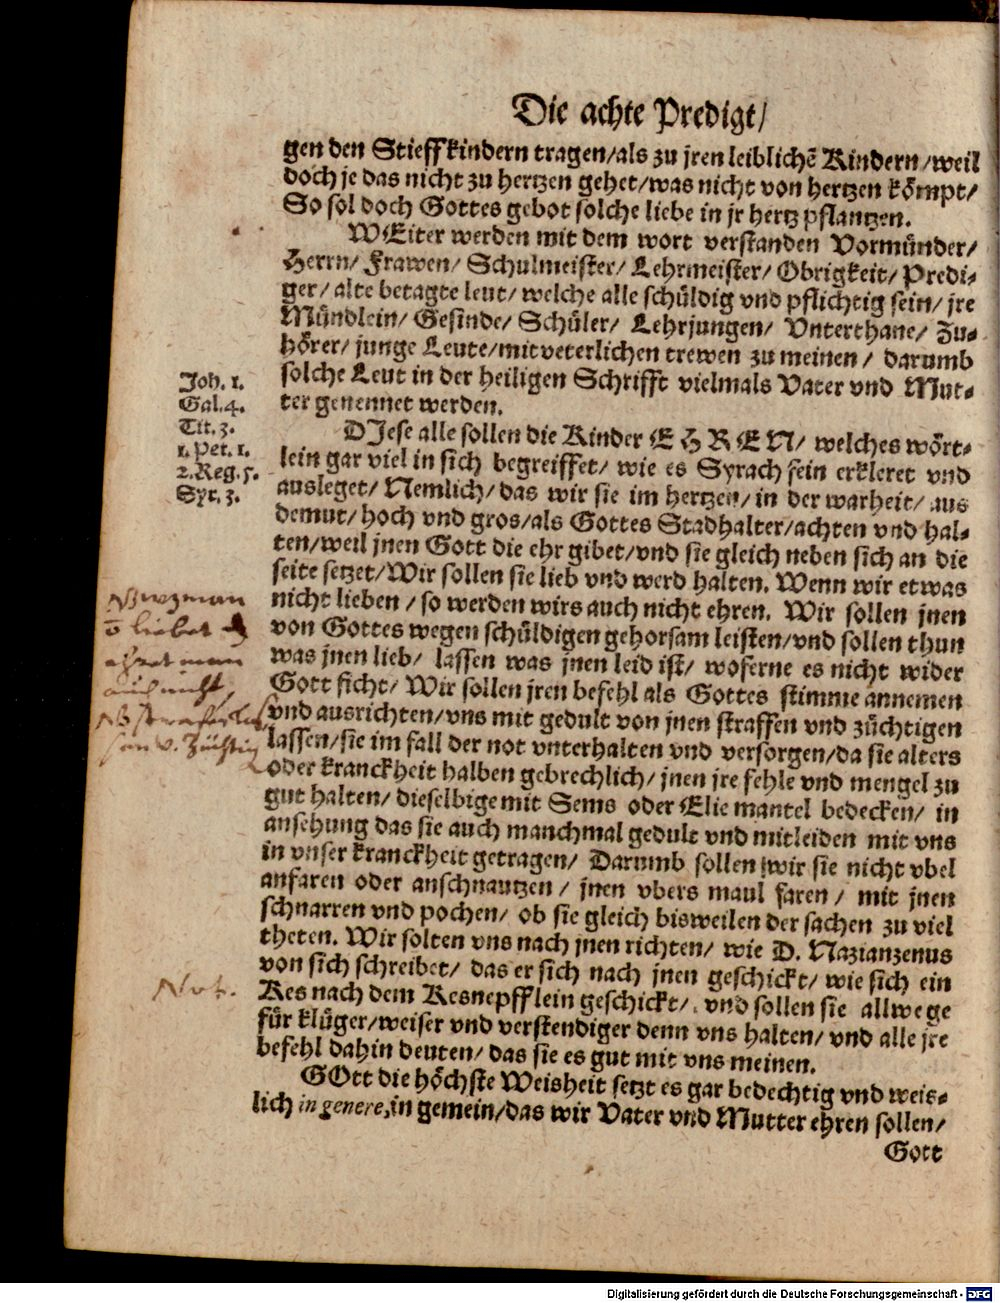 Die achte Predigt/
gen den Stieffkindern tragen/als zu jren leiblichē Kindern/weil
doch je das nicht zu hertzen gehet/was nicht von hertzen kömpt/
So sol doch Gottes gebot solche liebe in jr hertz pflantzen.
WEiter werden mit dem wort verstanden Vormünder/
Herrn/ Frawen/ Schulmeister/ Lehrmeister/ Obrigkeit/ Predi-
ger/ alte betagte leut/ welche alle schüldig vnd pflichtig sein/ jre
Mündlein/ Gesinde/ Schüler/ Lehrjungen/ Vnterthane/ Zu-
hörer/ junge Leute/mit veterlichen trewen zu meinen/ darumb
solche Leut in der heiligen Schrifft vielmals Vater vnd Mut-
ter genennet werden.
Joh. 1.
Gal. 4.
Tit. 3.
1. Pet. 1.
2. Reg. 5.
Syr. 3.
DIese alle sollen die Kinder EHREN/ welches wört-
lein gar viel in sich begreiffet/ wie es Syrach fein erkleret vnd
ausleget/ Nemlich/ das wir sie im hertzen/ in der warheit/ aus
demut/ hoch vnd gros/als Gottes Stadhalter/achten vnd hal-
ten/weil jnen Gott die ehr gibet/vnd sie gleich neben sich an die
seite setzet/Wir sollen sie lieb vnd werd halten. Wenn wir etwas
nicht lieben / so werden wirs auch nicht ehren. Wir sollen jnen
von Gottes wegen schüldigen gehorsam leisten/vnd sollen thun
was jnen lieb/ lassen was jnen leid ist/ woferne es nicht wider
Gott ficht/ Wir sollen jren befehl als Gottes stimme annemen
vnd ausrichten/vns mit gedult von jnen straffen vnd züchtigen
lassen/sie im fall der not vnterhalten vnd versorgen/da sie alters
oder kranckheit halben gebrechlich/ jnen jre fehle vnd mengel zu
gut halten/ dieselbige mit Sems oder Elie mantel bedecken/ in
ansehung das sie auch manchmal gedult vnd mitleiden mit vns
in vnser kranckheit getragen/ Darumb sollen wir sie nicht vbel
anfaren oder anschnautzen / jnen vbers maul faren / mit jnen
schnarren vnd pochen/ ob sie gleich bisweilen der sachen zu viel
theten. Wir solten vns nach jnen richten/ wie D. Nazianzenus
von sich schreibet/ das er sich nach jnen geschickt/ wie sich ein
Res nach dem Resnepfflein geschickt/ vnd sollen sie allwege
für klüger/weiser vnd verstendiger denn vns halten/ vnd alle jre
befehl dahin deuten/ das sie es gut mit vns meinen.
man
liebet
ehret man
auch nicht,
v. Züchtig
Not.
GOtt die höchste Weisheit setzt es gar bedechtig vnd weis-
lich in genere, in gemein/das wir Vater vnd Mutter ehren sollen/
Gott
Digitalisierung gefördert durch die Deutsche Forschungsgemeinschaft - DFG